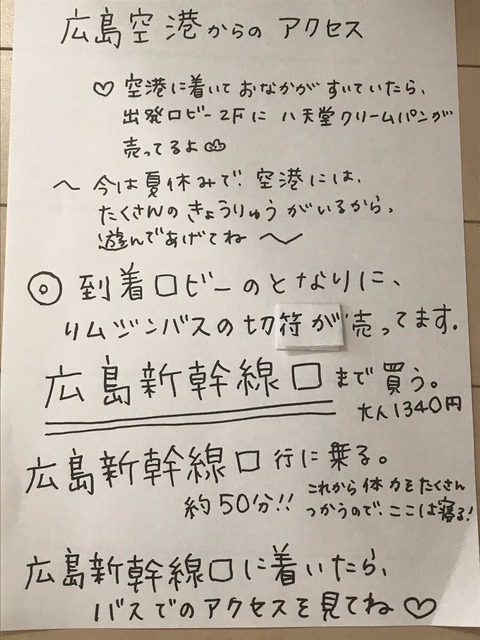 広島空港からの アクセス
♡ 空港に着いて おなかが すいていたら、
出発ロビー2Fに 八天堂クリームパンが
売ってるよ
〜 今は夏休みで、空港には、
たくさんの きょうりゅう がいるから、
遊んであげてね 〜
◎ 到着ロビーの となりに、
リムジンバスの 切符が 売ってます.
広島新幹線口まで 買う。
大人1340円
広島新幹線口 行に 乗る。
約50分!! これから 体力をたくさん
つかうので、ここは寝る!
広島新幹線口に 着いたら、
バスでのアクセスを 見てね♡